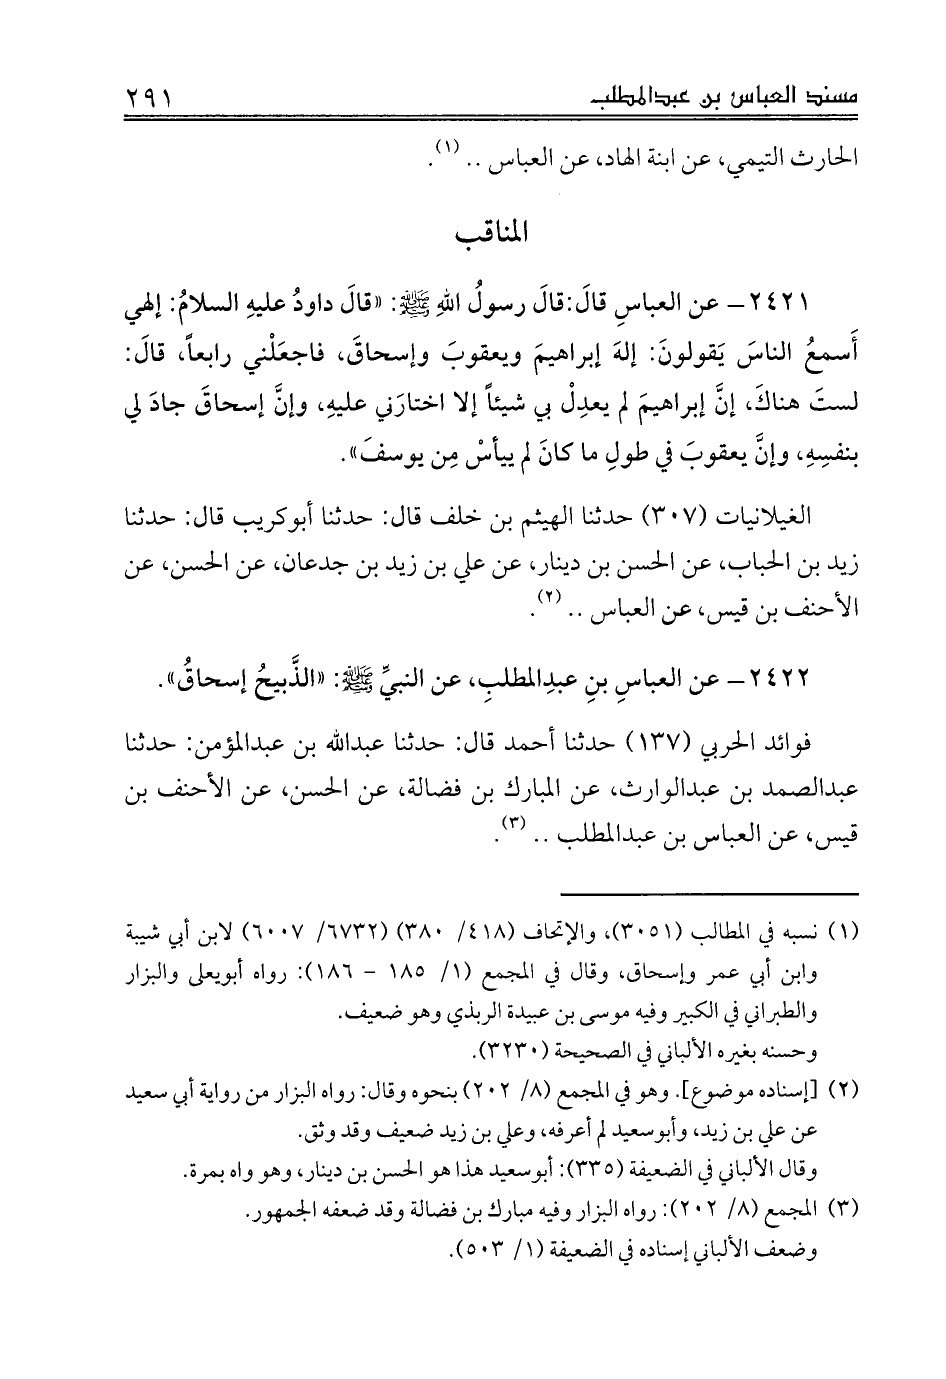 مسند العباس بن عبدالمطلب ٢٩١
الحارث التيمي، عن ابنة الهاد، عن العباس .. (١).
المناقب
٢٤٢١ – عن العباسِ قالَ: قالَ رسولُ اللهِ ﷺ: «قالَ داودُ عليهِ السلامُ: إلهي
أَسمعُ الناسَ يَقولونَ: إلهَ إبراهيمَ ويعقوبَ وإسحاقَ، فاجعَلْني رابعاً، قالَ:
لستَ هناكَ، إنَّ إبراهيمَ لم يعدِلْ بي شيئاً إلا اختارَني عليهِ، وإنَّ إسحاقَ جادَ لي
بنفسِهِ، وإنَّ يعقوبَ في طولِ ما كانَ لم ييأسْ مِن يوسفَ».
الغيلانيات (٣٠٧) حدثنا الهيثم بن خلف قال: حدثنا أبوكريب قال: حدثنا
زيد بن الحباب، عن الحسن بن دينار، عن علي بن زيد بن جدعان، عن الحسن، عن
الأحنف بن قيس، عن العباس .. (٢).
٢٤٢٢ – عن العباسِ بنِ عبدِالمطلبِ، عن النبيِّ ﷺ: «الذَّبيحُ إسحاقُ».
فوائد الحربي (١٣٧) حدثنا أحمد قال: حدثنا عبدالله بن عبدالمؤمن: حدثنا
عبدالصمد بن عبدالوارث، عن المبارك بن فضالة، عن الحسن، عن الأحنف بن
قيس، عن العباس بن عبدالمطلب .. (٣).
(١) نسبه في المطالب (٣٠٥١)، والإتحاف (٤١٨/ ٣٨٠) (٦٧٣٢/ ٦٠٠٧) لابن أبي شيبة
وابن أبي عمر وإسحاق، وقال في المجمع (١/ ١٨٥ – ١٨٦): رواه أبويعلى والبزار
والطبراني في الكبير وفيه موسى بن عبيدة الربذي وهو ضعيف.
وحسنه بغيره الألباني في الصحيحة (٣٢٣٠).
(٢) [إسناده موضوع]. وهو في المجمع (٨/ ٢٠٢) بنحوه وقال: رواه البزار من رواية أبي سعيد
عن علي بن زيد، وأبوسعيد لم أعرفه، وعلي بن زيد ضعيف وقد وثق.
وقال الألباني في الضعيفة (٣٣٥): أبوسعيد هذا هو الحسن بن دينار، وهو واه بمرة.
(٣) المجمع (٨/ ٢٠٢): رواه البزار وفيه مبارك بن فضالة وقد ضعفه الجمهور.
وضعف الألباني إسناده في الضعيفة (١/ ٥٠٣).